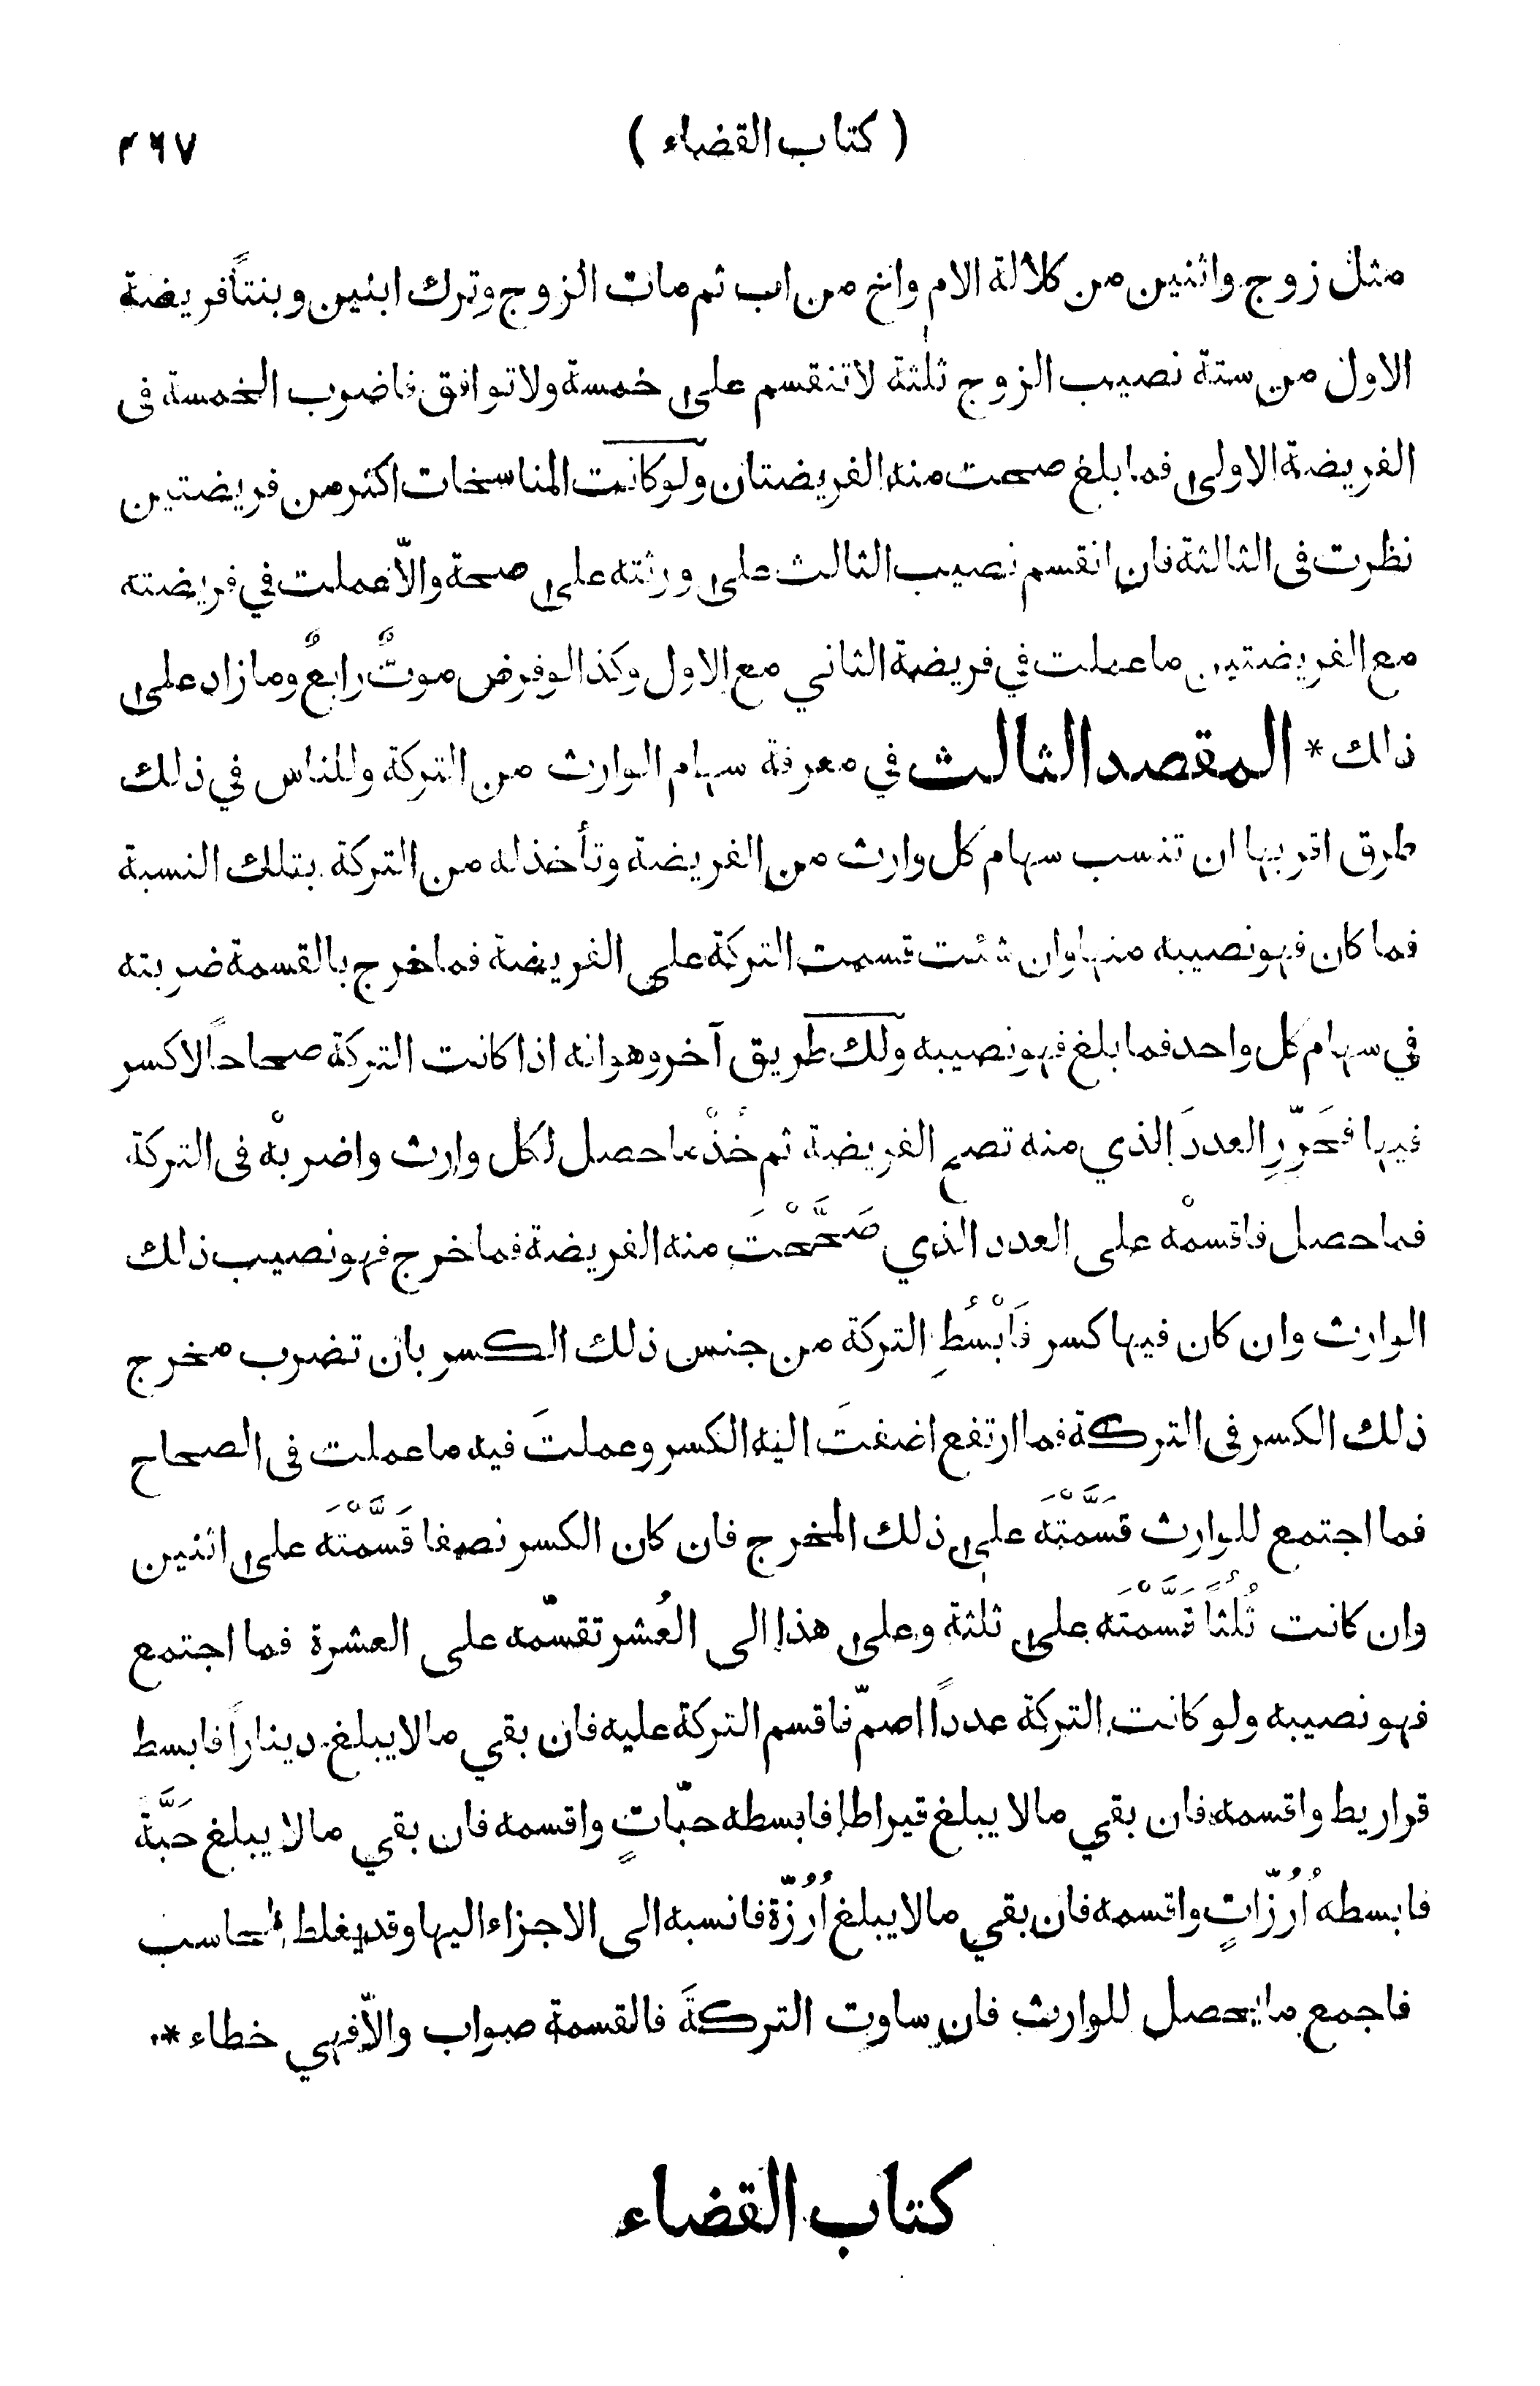 ( كتاب القضاء ) ٤٦٧
مثل زوج واثنين من كلالة الام واخ من اب ثم مات الزوج وترك ابنين وبنتاً فريضة
الاول من ستة نصيب الزوج ثلٰثة لا تنقسم على خمسة ولا توافق فاضرب الخمسة فى
الفريضة الاولى فما بلغ صحت منه الفريضتان ولو كانت المناسخات اكثر من فريضتين
نظرت فى الثالثة فان انقسم نصيب الثالث على ورثته على صحة والّا عملت في فريضته
مع الفريضتين ما عملت في فريضة الثاني مع الاول وكذا لو فرض موتٌ رابعٌ وما زاد على
ذلك * المقصد الثالث في معرفة سهام الوارث من التركة وللناس في ذلك
طرق اقربها ان تنسب سهام كل وارث من الفريضة وتأخذ له من التركة بتلك النسبة
فما كان فهو نصيبه منها وان شئت قسمت التركة على الفريضة فما خرج بالقسمة ضربته
في سهام كل واحد فما بلغ فهو نصيبه ولك طريق آخر وهو انه اذا كانت التركة صحاحاً لا كسر
فيها فحَرّرِ العددَ الذي منه تصح الفريضة ثم خُذْ ما حصل لكل وارث واضربْه فى التركة
فما حصل فاقسمْه على العدد الذي صَحَّحْتَ منه الفريضة فما خرج فهو نصيب ذلك
الوارث وان كان فيها كسر فَابْسُطِ التركة من جنس ذلك الكسر بان تضرب مخرج
ذلك الكسر فى التركة فما ارتفع اضفتَ اليه الكسر وعملتَ فيه ما عملت فى الصحاح
فما اجتمع للوارث قَسَّمْتَه على ذلك المخرج فان كان الكسر نصفا قَسَّمْتَه على اثنين
وان كانت ثُلُثاً قَسَّمْتَه على ثلٰثة وعلى هذا الى العُشر تقسّمه على العشرة فما اجتمع
فهو نصيبه ولو كانت التركة عدداً اصمّ فاقسم التركة عليه فان بقي ما لا يبلغ ديناراً فابسط
قراريط واقسمه فان بقي ما لا يبلغ قيراطا فابسطه حبّاتٍ واقسمه فان بقي ما لا يبلغ حَبَّة
فابسطه اُرُزّاتٍ واقسمه فان بقي ما لا يبلغ اُرُزّة فانسبه الى الاجزاء اليها وقد يغلط الحاسب
فاجمع ما يحصل للوارث فان ساوت التركةَ فالقسمة صواب والّا فهي خطاء *
كتاب القضاء